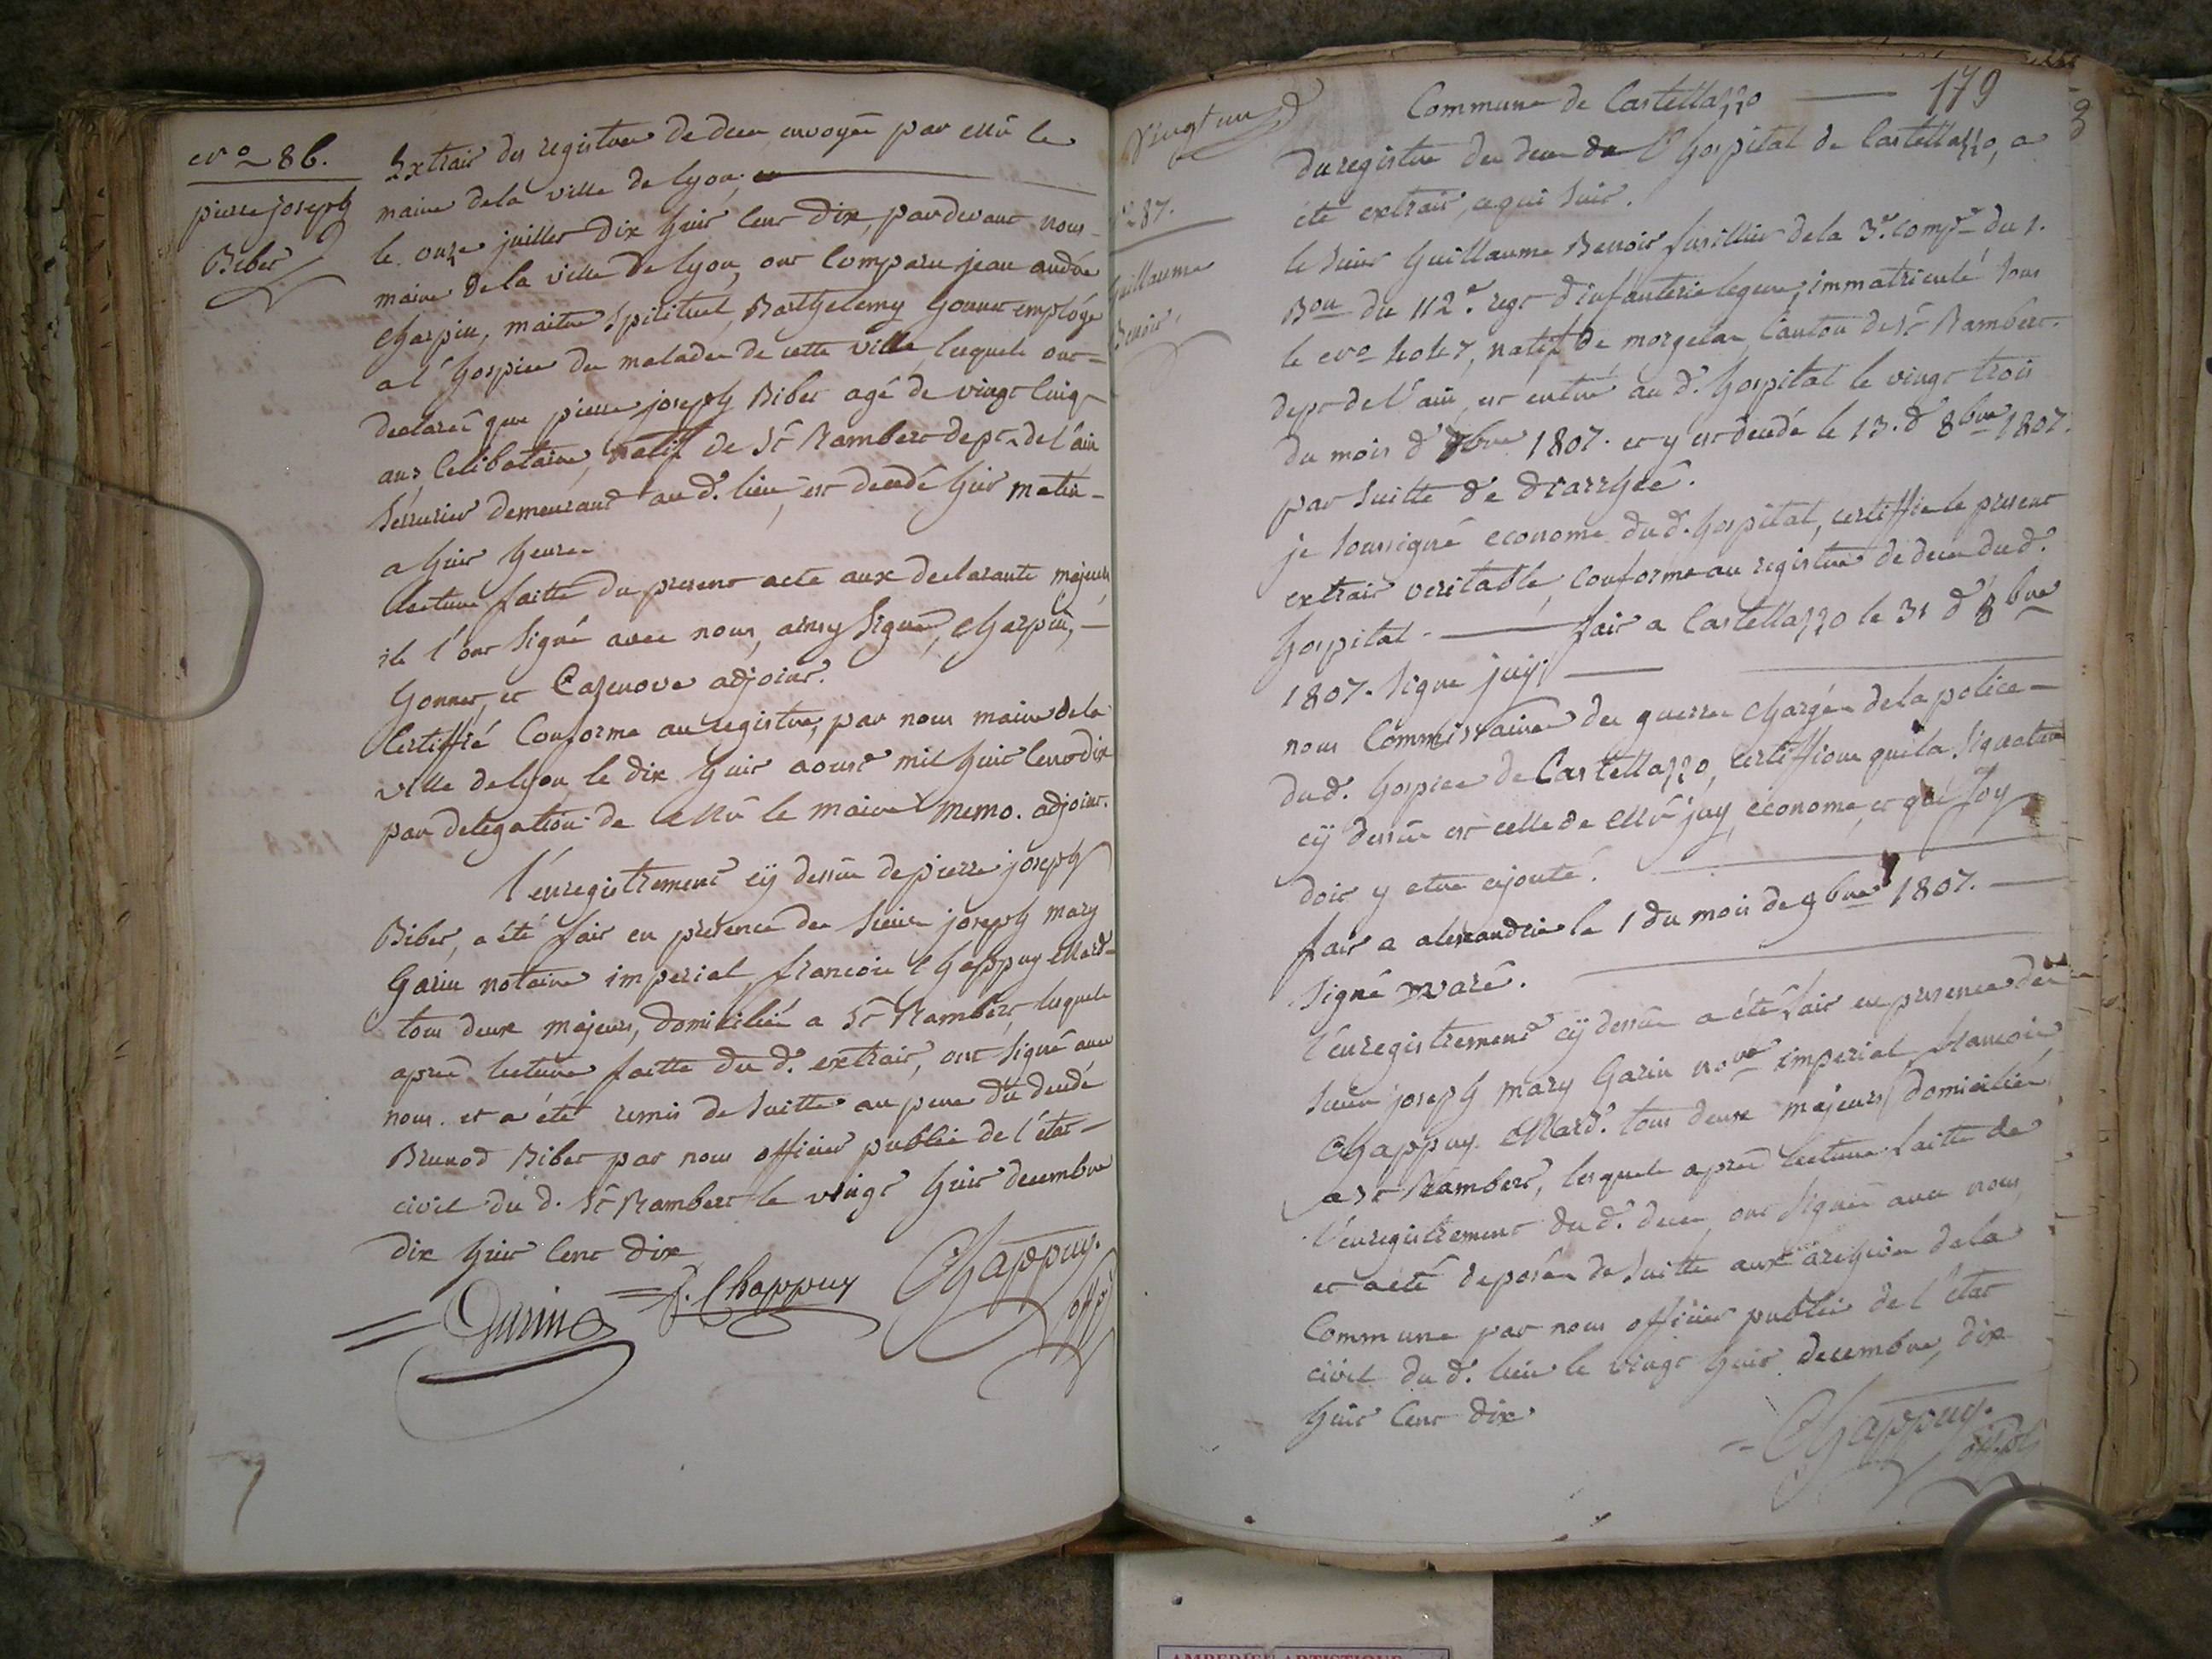 No 86.
pierre joseph
Biber
Extrait des registres de deces envoyée par Mr le
maire de la ville de lyon,
le onze juillet dix huit cent dix, pardevant nous
maire de la ville de lyon, ont comparu jean andré
Charpin, maitre spirituel, Barthelemy Gonnet employé
a l'hospice des malades de cette ville, lesquels ont
declarés que pierre joseph Biber agé de vingt cinq
ans, Celibataire, natif de St Rambert dept de l'ain
serrurier demeurant au d. lieu, est decedé hier matin
a huit heures
lecture faitte du present acte aux declarants majeurs
ils l'ont signé avec nous, ainsy signés, Charpin,
Gonnet, et Cazenove adjoint.
Certiffié Conforme au registre, par nous maire de la
ville de lyon, le dix huit aoust mil huit cent dix
par delegation de Mr le maire Memo. adjoint.
l'enregistrement cÿ dessus de pierre joseph
Biber, a été fait en presence des sieurs joseph mary
Garin notaire imperial, francois Chappuy Mard.
tous deux majeurs, domiciliés a St Rambert, lesquels
aprés lecture faitte du d. extrait, ont signé avec
nous. et a été remis de suitte au pere du decedé
Brunod Biber par nous officier public de l'état
civil du d. St Rambert le vingt huit decembre
dix huit cent dix
Garin
f. Chappuy
Chappuy.
offr
Vingt un
179
Commune de Castellazzo
87.
Guillaume
Benoit
du registre des deces de l'hospital de Castellazzo, a
été extrait, ce qui suit.
le sieur Guillaume Benoit fusillier de la 3e. compe du 1.
Bon du 112e. regt d'infanterie legere, immatriculé sous
le No 4047, natif de morgelas Canton de St Rambert.
dept de l'ain, est entré au d. hospital le vingt trois
du mois d' 7bre 1807. et y est decedé le 13. d' 8bre 1807.
par suitte de diarrhée.
je soussigné econome du d. hospital, certiffie le present
extrait veritable, conforme au registre de deces du d.
hospital. fait a Castellazzo le 31 d' 8bre
1807. signé juy.
nous Commissaire des guerres chargés de la police
du d. hospice de Castellazzo, certiffions que la signature
cÿ dessus est celle de Mr juy, econome, et que foy
doit y etre ajouté.
fait a alexandrie le 1 du mois de 9bre 1807.
signé Maré.
l'enregistrement cÿ dessus a été fait en presence des
sieurs joseph mary Garin nore imperial, francois
Chappuy Mard. tous deux majeurs, domiciliés
a St Rambert, lesquels aprés lecture faitte de
l'enregistrement du d. deces, ont signés avec nous
et a été deposés de suitte aux archives de la
Commune par nous officier public de l'état
civil du d. lieu le vingt huit decembre, dix
huit cent dix
Chappuy.
AMBERIEU ARTISTIQUE